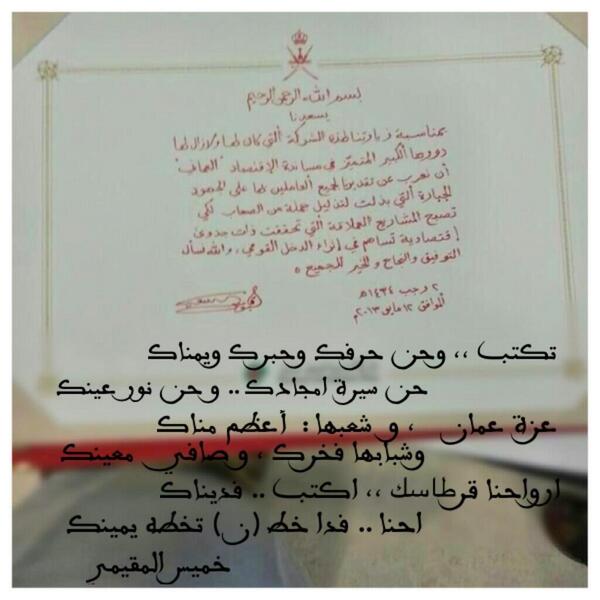 بسم الله الرحمن الرحيم
يسعدنا
بمناسبة زيارتنا لهذه الشركة التي كان لها ولا زال لها
دورها الكبير المتميّز في مساندة الإقتصاد العماني
أن نعرب عن تقديرنا لجميع العاملين لها على الجهود
الجبارة التي بذلت لتذليل جملة من الصعاب لكي
تصبح المشاريع العملاقة التي تحققت ذات جدوى
إقتصادية تساهم في إثراء الدخل القومي، والله نسأل
التوفيق والنجاح والخير للجميع
٢ رجب ١٤٣٤هـ
الموافق ١٢ مايو ٢٠١٣م
تكتب ،، وحن حرفك وحبرك ويمناك
حن سيرة امجادك .. وحن نور عينك
عزة عمان ، و شعبها : أعظم مناك
وشبابها فخرك ، و صافي معينك
ارواحنا قرطاسك ،، اكتب .. فديناك
احنا .. فدا خط (ن) تخطه يمينك
خميس المقيمي